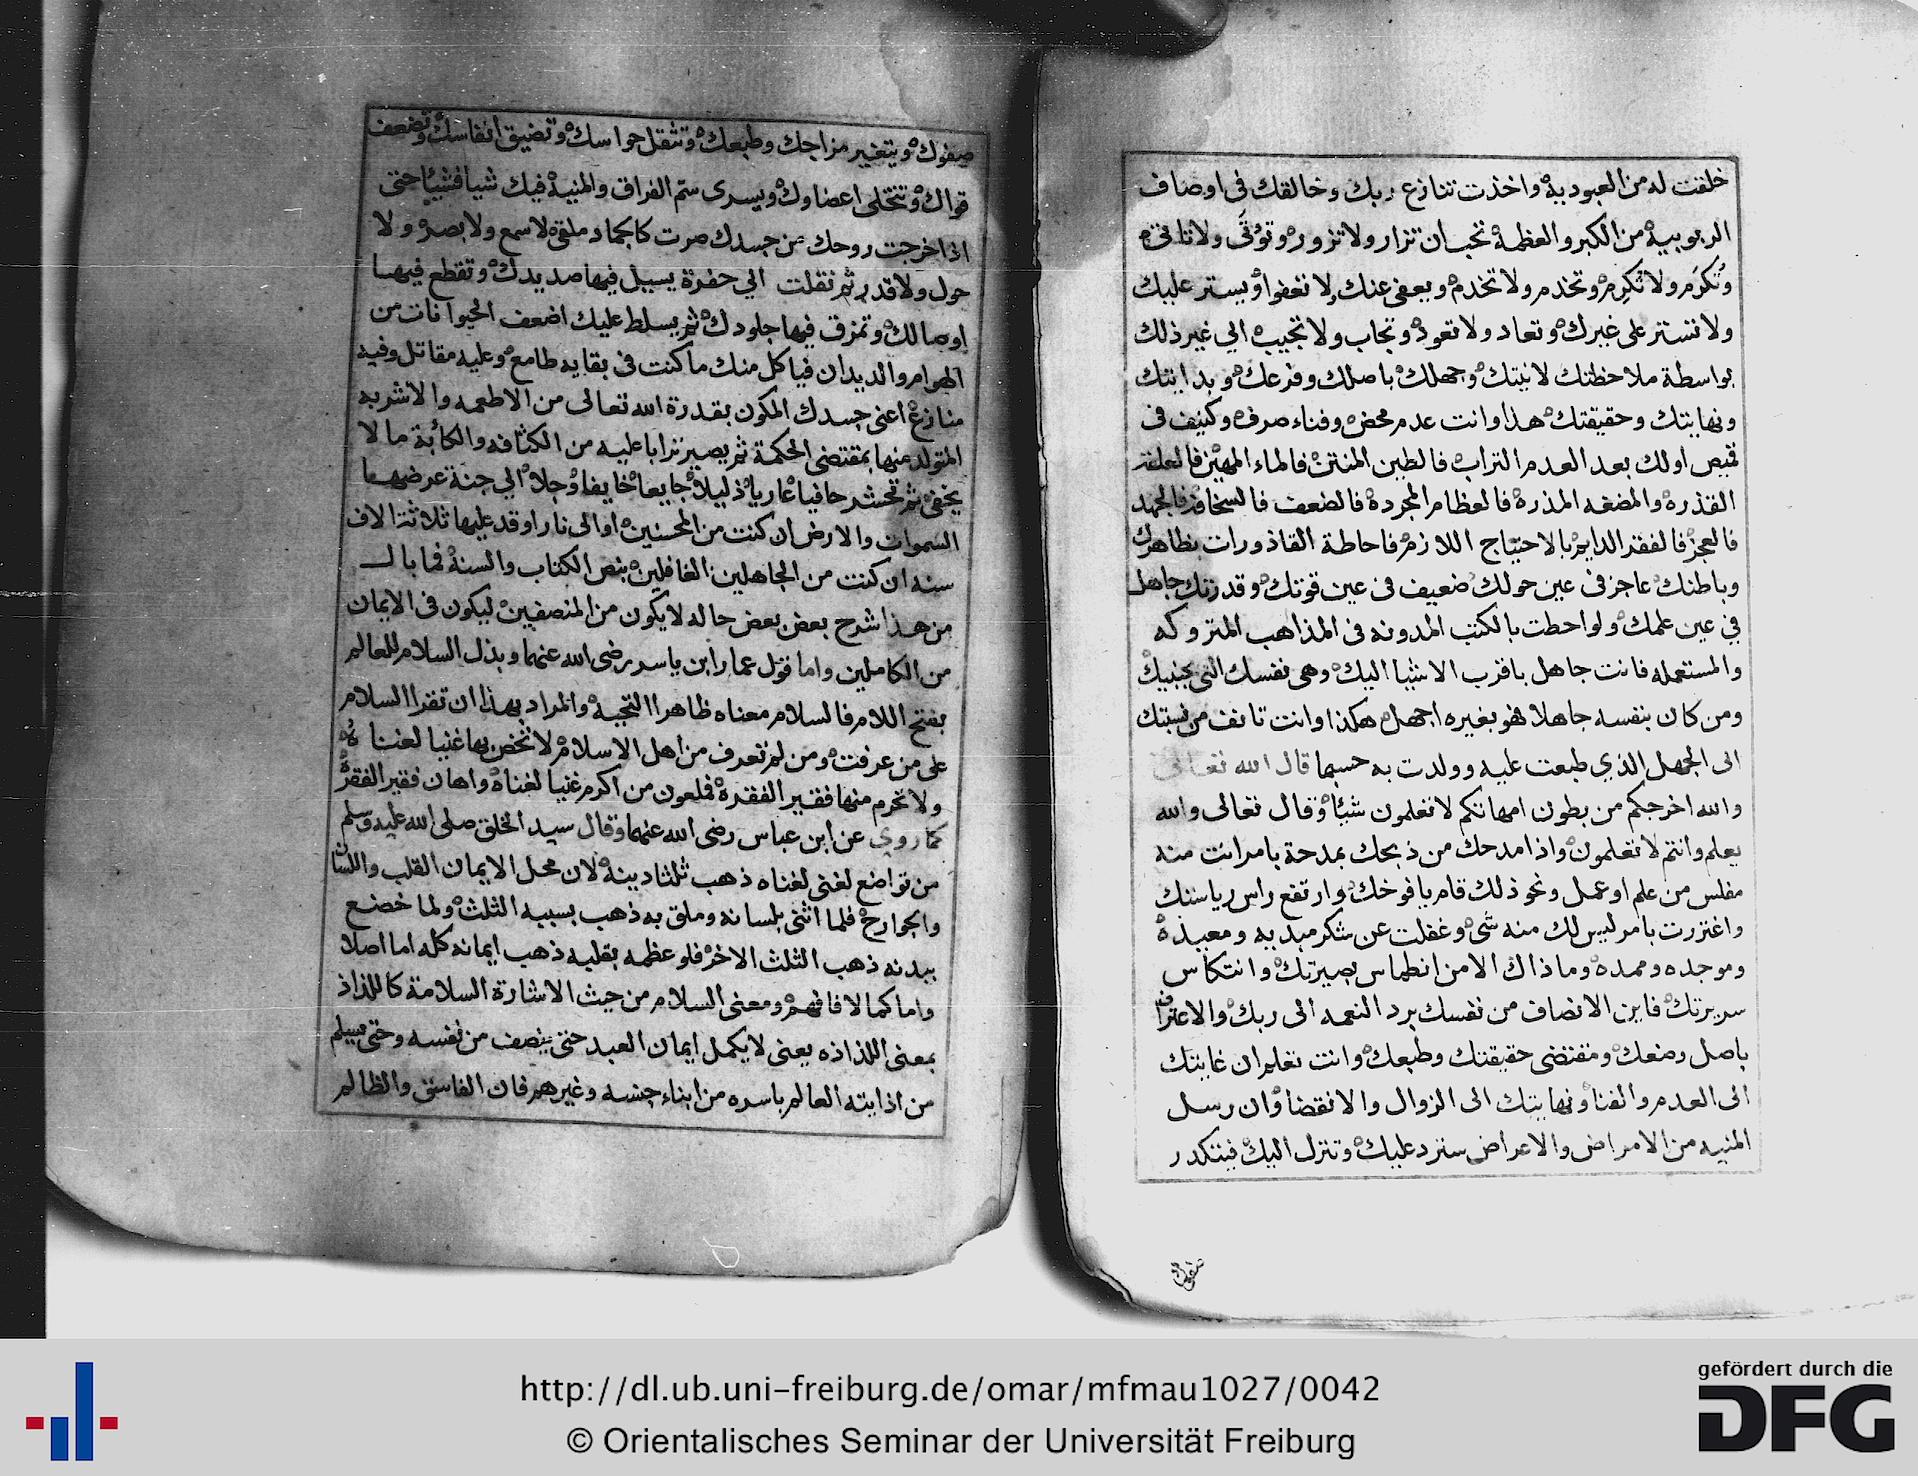 خلقت له من العبودية واخذت تنازع ربك وخالقك في اوصاف
الربوبية من الكبر والعظمة تحب ان تزار ولا تزور وتؤتى ولا تاتي
وتكرم ولا تكرم وتخدم ولا تخدم ويعفى عنك ولا تعفوا ويستر عليك
ولا تستر على غيرك وتعاد ولا تعود وتجاب ولا تجيب الي غير ذلك
بواسطة ملاحظتك لانيتك وجهلك باصلك وفرعك وبدايتك
ونهايتك وحقيقتك هذا وانت عدم محض وفناء صرف وكنيف في
قميص اولك بعد العدم التراب فالطين المنتن فالماء المهين فالعلقة
القذره والمضغه المذرة فالعظام المجردة فالضعف فالسخافة
فالعجز فالفقر الدايم بالاحتياج اللازم فاحاطة القاذورات بظاهرك
وباطنك عاجز في عين حولك ضعيف في عين قوتك وقدرتك جاهل
في عين علمك ولو احطت بالكتب المدونه في المذاهب المتروكه
والمستعمله فانت جاهل باقرب الاشيا اليك وهي نفسك التي بجنبيك
ومن كان بنفسه جاهلا فهو بغيره اجهل هكذا وانت تانف من نسبتك
الى الجهل الذي طبعت عليه وولدت به حسبما قال الله تعالى
والله اخرجكم من بطون امهاتكم لا تعلمون شيئا وقال تعالى والله
يعلم وانتم لا تعلمون واذا مدحك من ذبحك بمدحة بامر انت منه
مفلس من علم او عمل ونحو ذلك قام يافوخك وارتفع راس رياستك
واغتررت بامر ليس لك منه شي وغفلت عن شكر مبديه ومعيده
وموجده وممده وما ذاك الا من انطماس بصيرتك وانتكاس
سريرتك فاين الانصاف من نفسك برد النعمه الى ربك والاعتراف
باصل رضعك ومقتضى حقيقتك وطبعك وانت تعلم ان غايتك
الى العدم والفنا ونهايتك الى الزوال والانقضا وان رسل
المنيه من الامراض والاعراض سترد عليك وتنزل اليك فيتكدر
صفوك
صفوك ويتغير مزاجك وطبعك وتثقل حواسك وتضيق انفاسك وتضعف
قواك وتتخلى اعضاوك ويسرى سم الفراق والمنية فيك شيا فشيئا حتى
اذا خرجت روحك من جسدك صرت كالجماد ملقى لا سمع ولا بصر ولا
حول ولا قدر ثم نقلت الي حفرة يسيل فيها صديدك وتقطع فيها
اوصالك وتمزق فيها جلودك ثم يسلط عليك اضعف الحيوانات من
الهوام والديدان فياكل منك ما كنت في بقايه طامع وعليه مقاتل وفيه
منازع اعني جسدك المكون بقدرة الله تعالى من الاطعمه والاشربه
المتولد منها بمقتضى الحكمة ثم يصير ترابا عليه من الكثافه والكآبة ما لا
يخفى ثم تحشر حافيا عاريا ذليلا جايعا خايفا وجلا الي جنة عرضها
السموات والارض ان كنت من المحسنين او الى نار اوقد عليها ثلاثة الاف
سنه ان كنت من الجاهلين الغافلين بنص الكتاب والسنة فما بال
من هذا شرح بعض بعض حاله لا يكون من المنصفين ليكون في الايمان
من الكاملين واما قول عمار ابن ياسر رضى الله عنهما وبذل السلام للعالم
بفتح اللام فالسلام معناه ظاهرا التحية والمراد بهذا ان تقرا السلام
على من عرفت ومن لم تعرف من اهل الاسلام لا تخص بها غنيا لغناه
ولا تحرم منها فقير الفقره فملعون من اكرم غنيا لغناه واهان فقير الفقره
كما روي عن ابن عباس رضى الله عنهما وقال سيد الخلق صلى الله عليه وسلم
من تواضع لغني لغناه ذهب ثلثا دينه لان محل الايمان القلب واللسان
والجوارح فلما اثنى بلسانه وملق به ذهب بسببه الثلث ولما خضع
ببدنه ذهب الثلث الاخر فلو عظمه بقلبه ذهب ايمانه كله اما اصلا
واما كمالا فافهم ومعنى السلام من حيث الاشارة السلامة كاللذاذ
بمعنى اللذاذه يعنى لا يكمل ايمان العبد حتى ينصف من نفسه وحتى يسلم
من اذايته العالم باسره من ابناء جنسه وغيرهم فان الفاسق والظالم
http://dl.ub.uni-freiburg.de/omar/mfmau1027/0042
© Orientalisches Seminar der Universität Freiburg
gefördert durch die
DFG